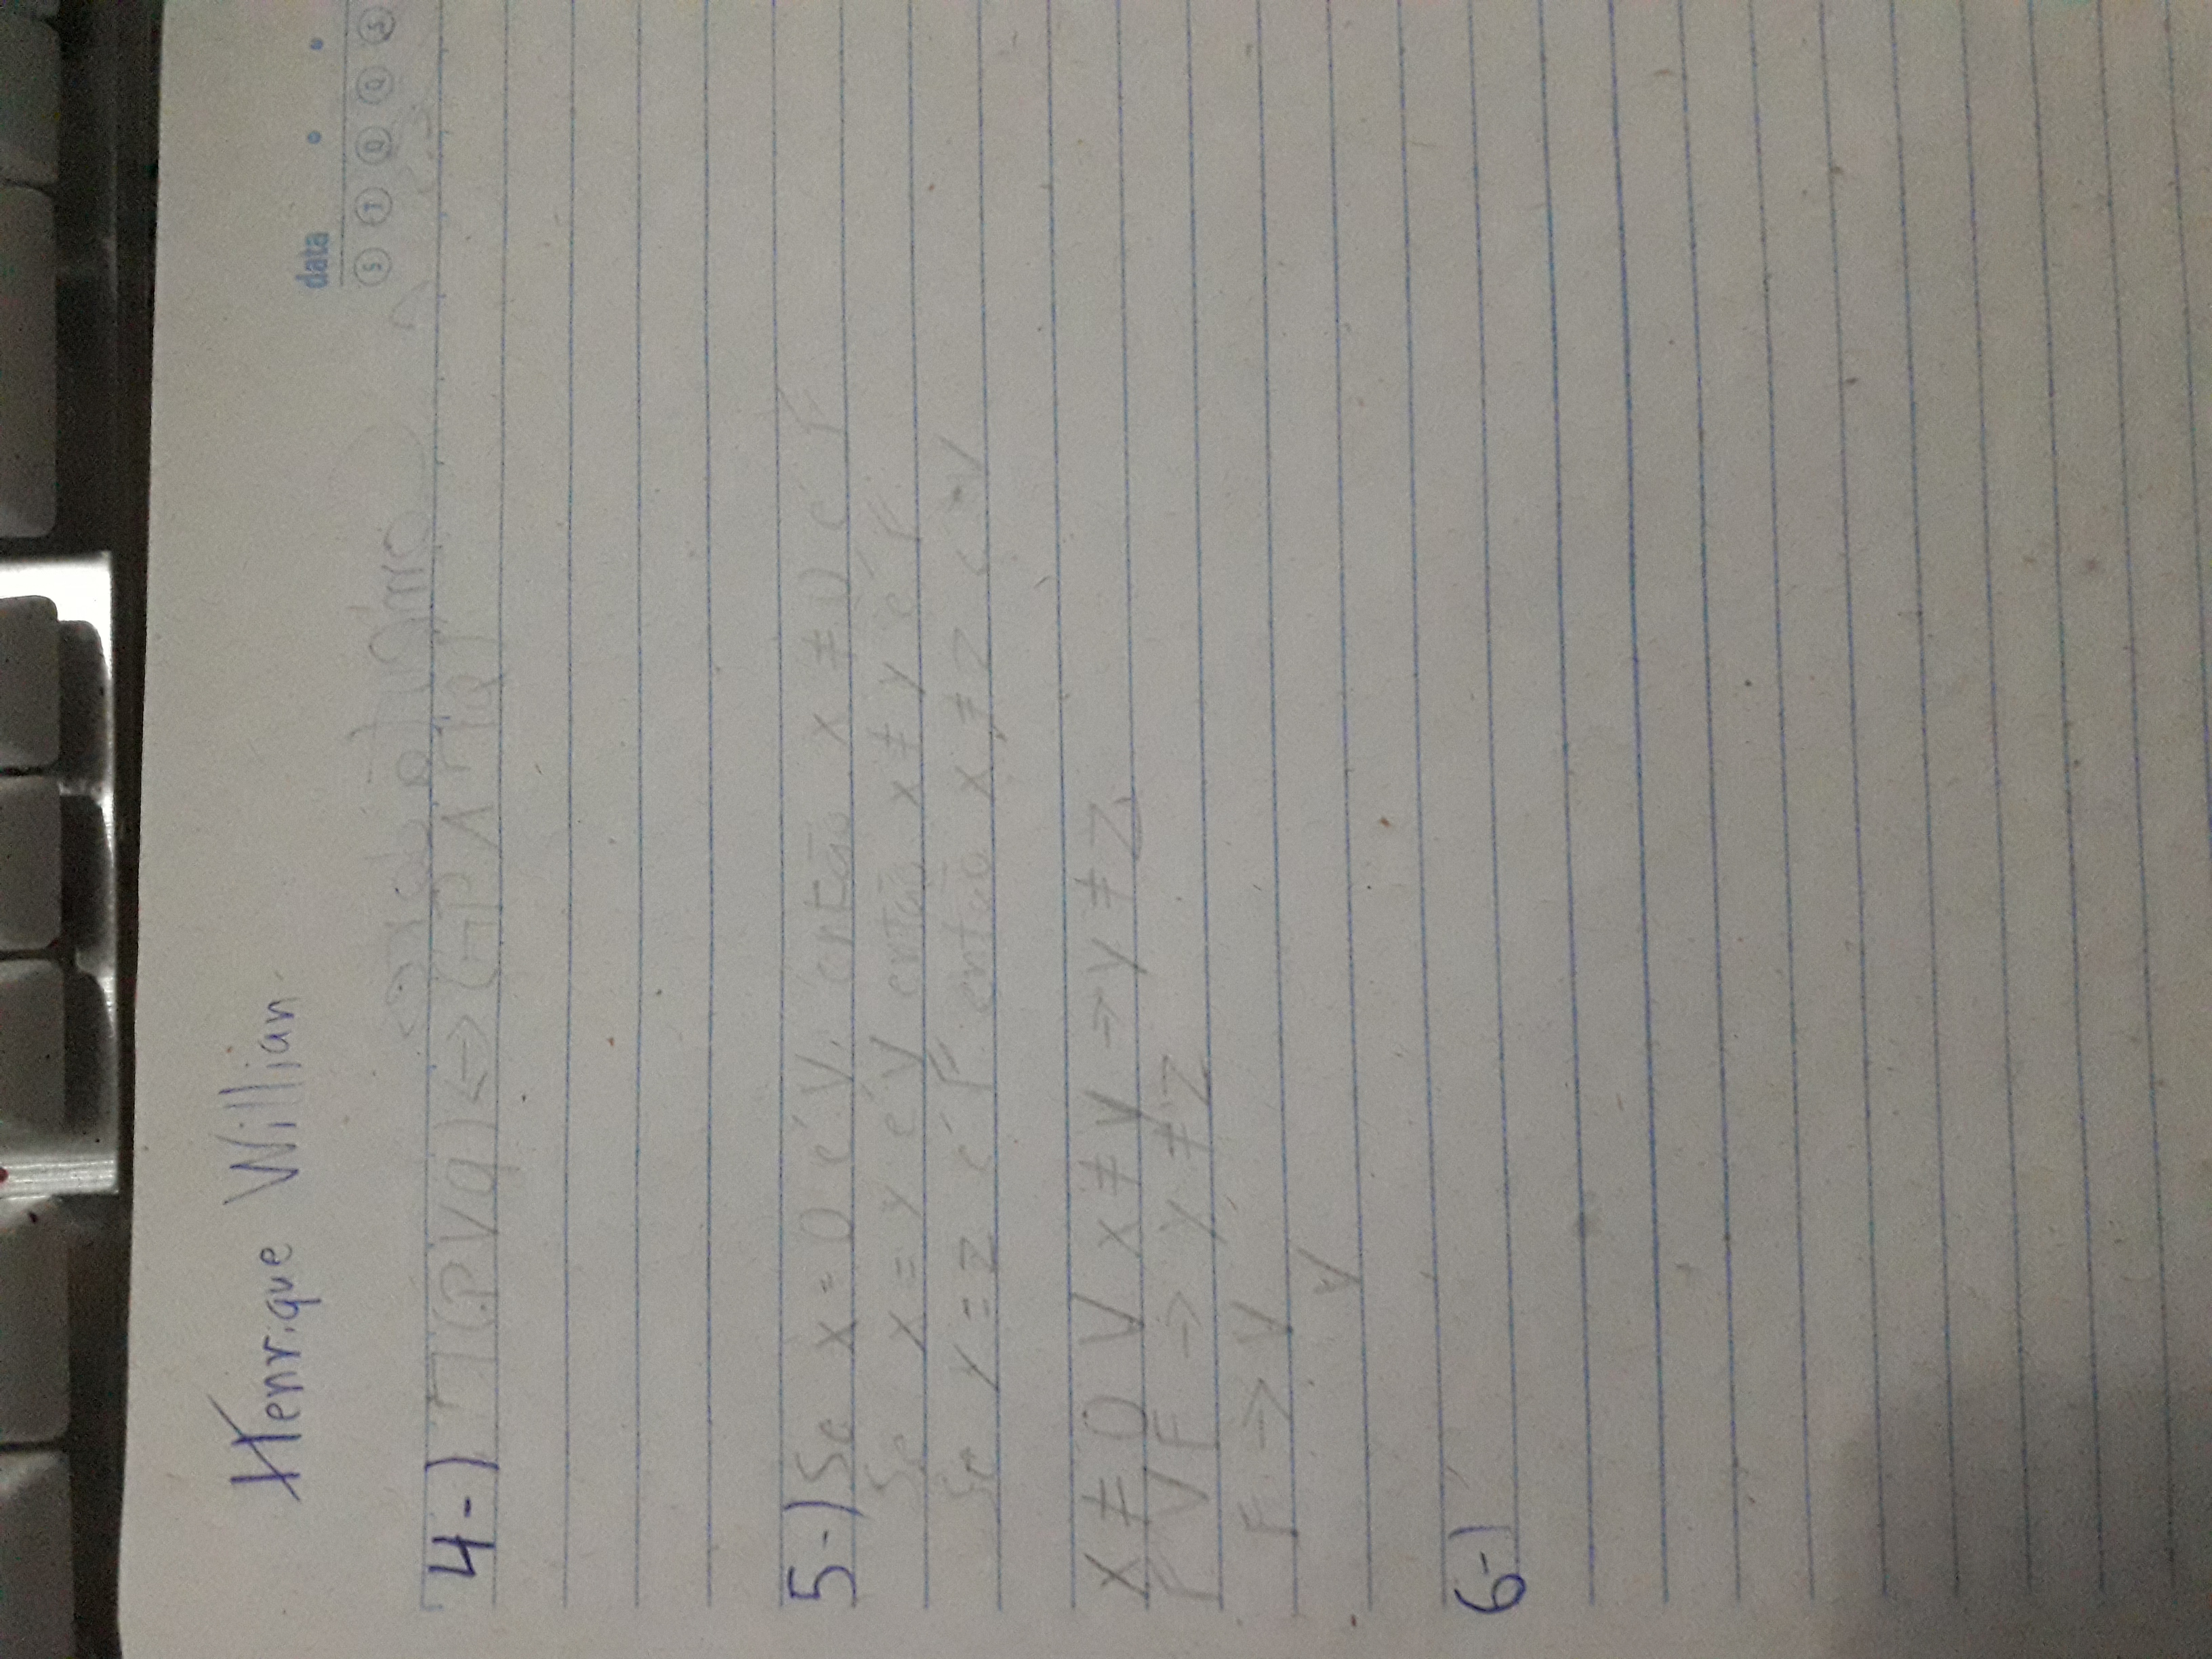 Henrique Willian
data
S T Q Q S
4-) ¬(P V q) <-> (¬P Λ ¬q)
5-) Se x = 0 é V, então x ≠ 0 é F
Se x = y é V então x ≠ y é F
Se y = z é F então x ≠ z é V
X ≠ 0 V x ≠ y -> y ≠ z
F V F -> y ≠ z
F -> V
V
6-)